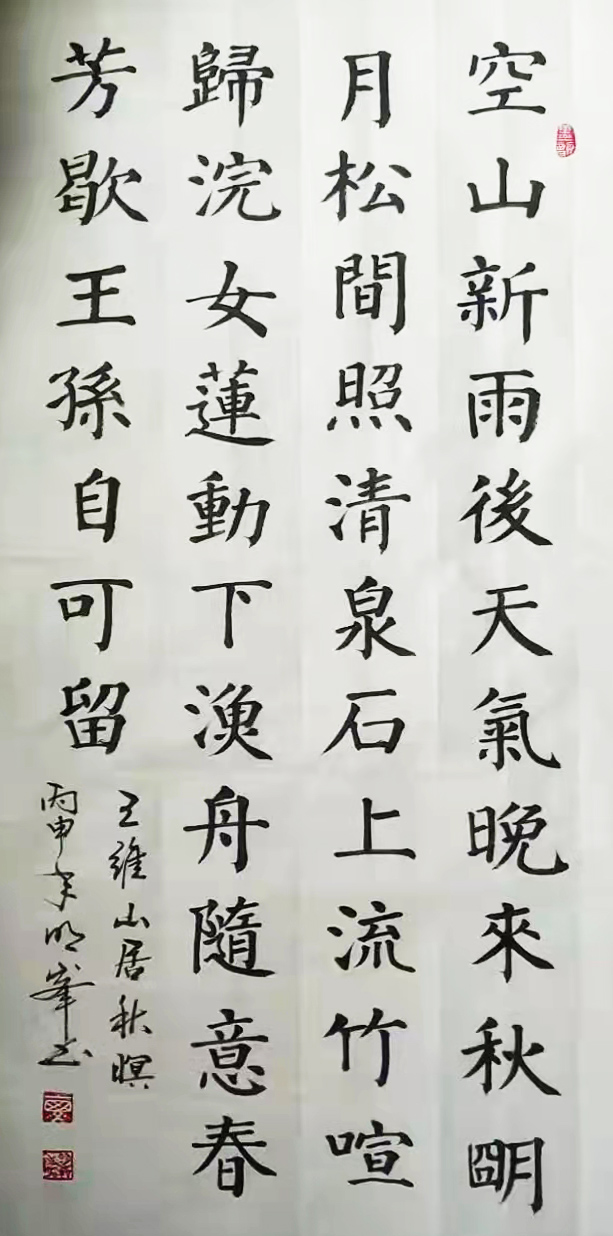 空山新雨後天氣晚來秋朙
月松間照清泉石上流竹喧
歸浣女蓮動下漁舟隨意春
芳歇王孫自可留
王維山居秋暝
丙申年明峯书